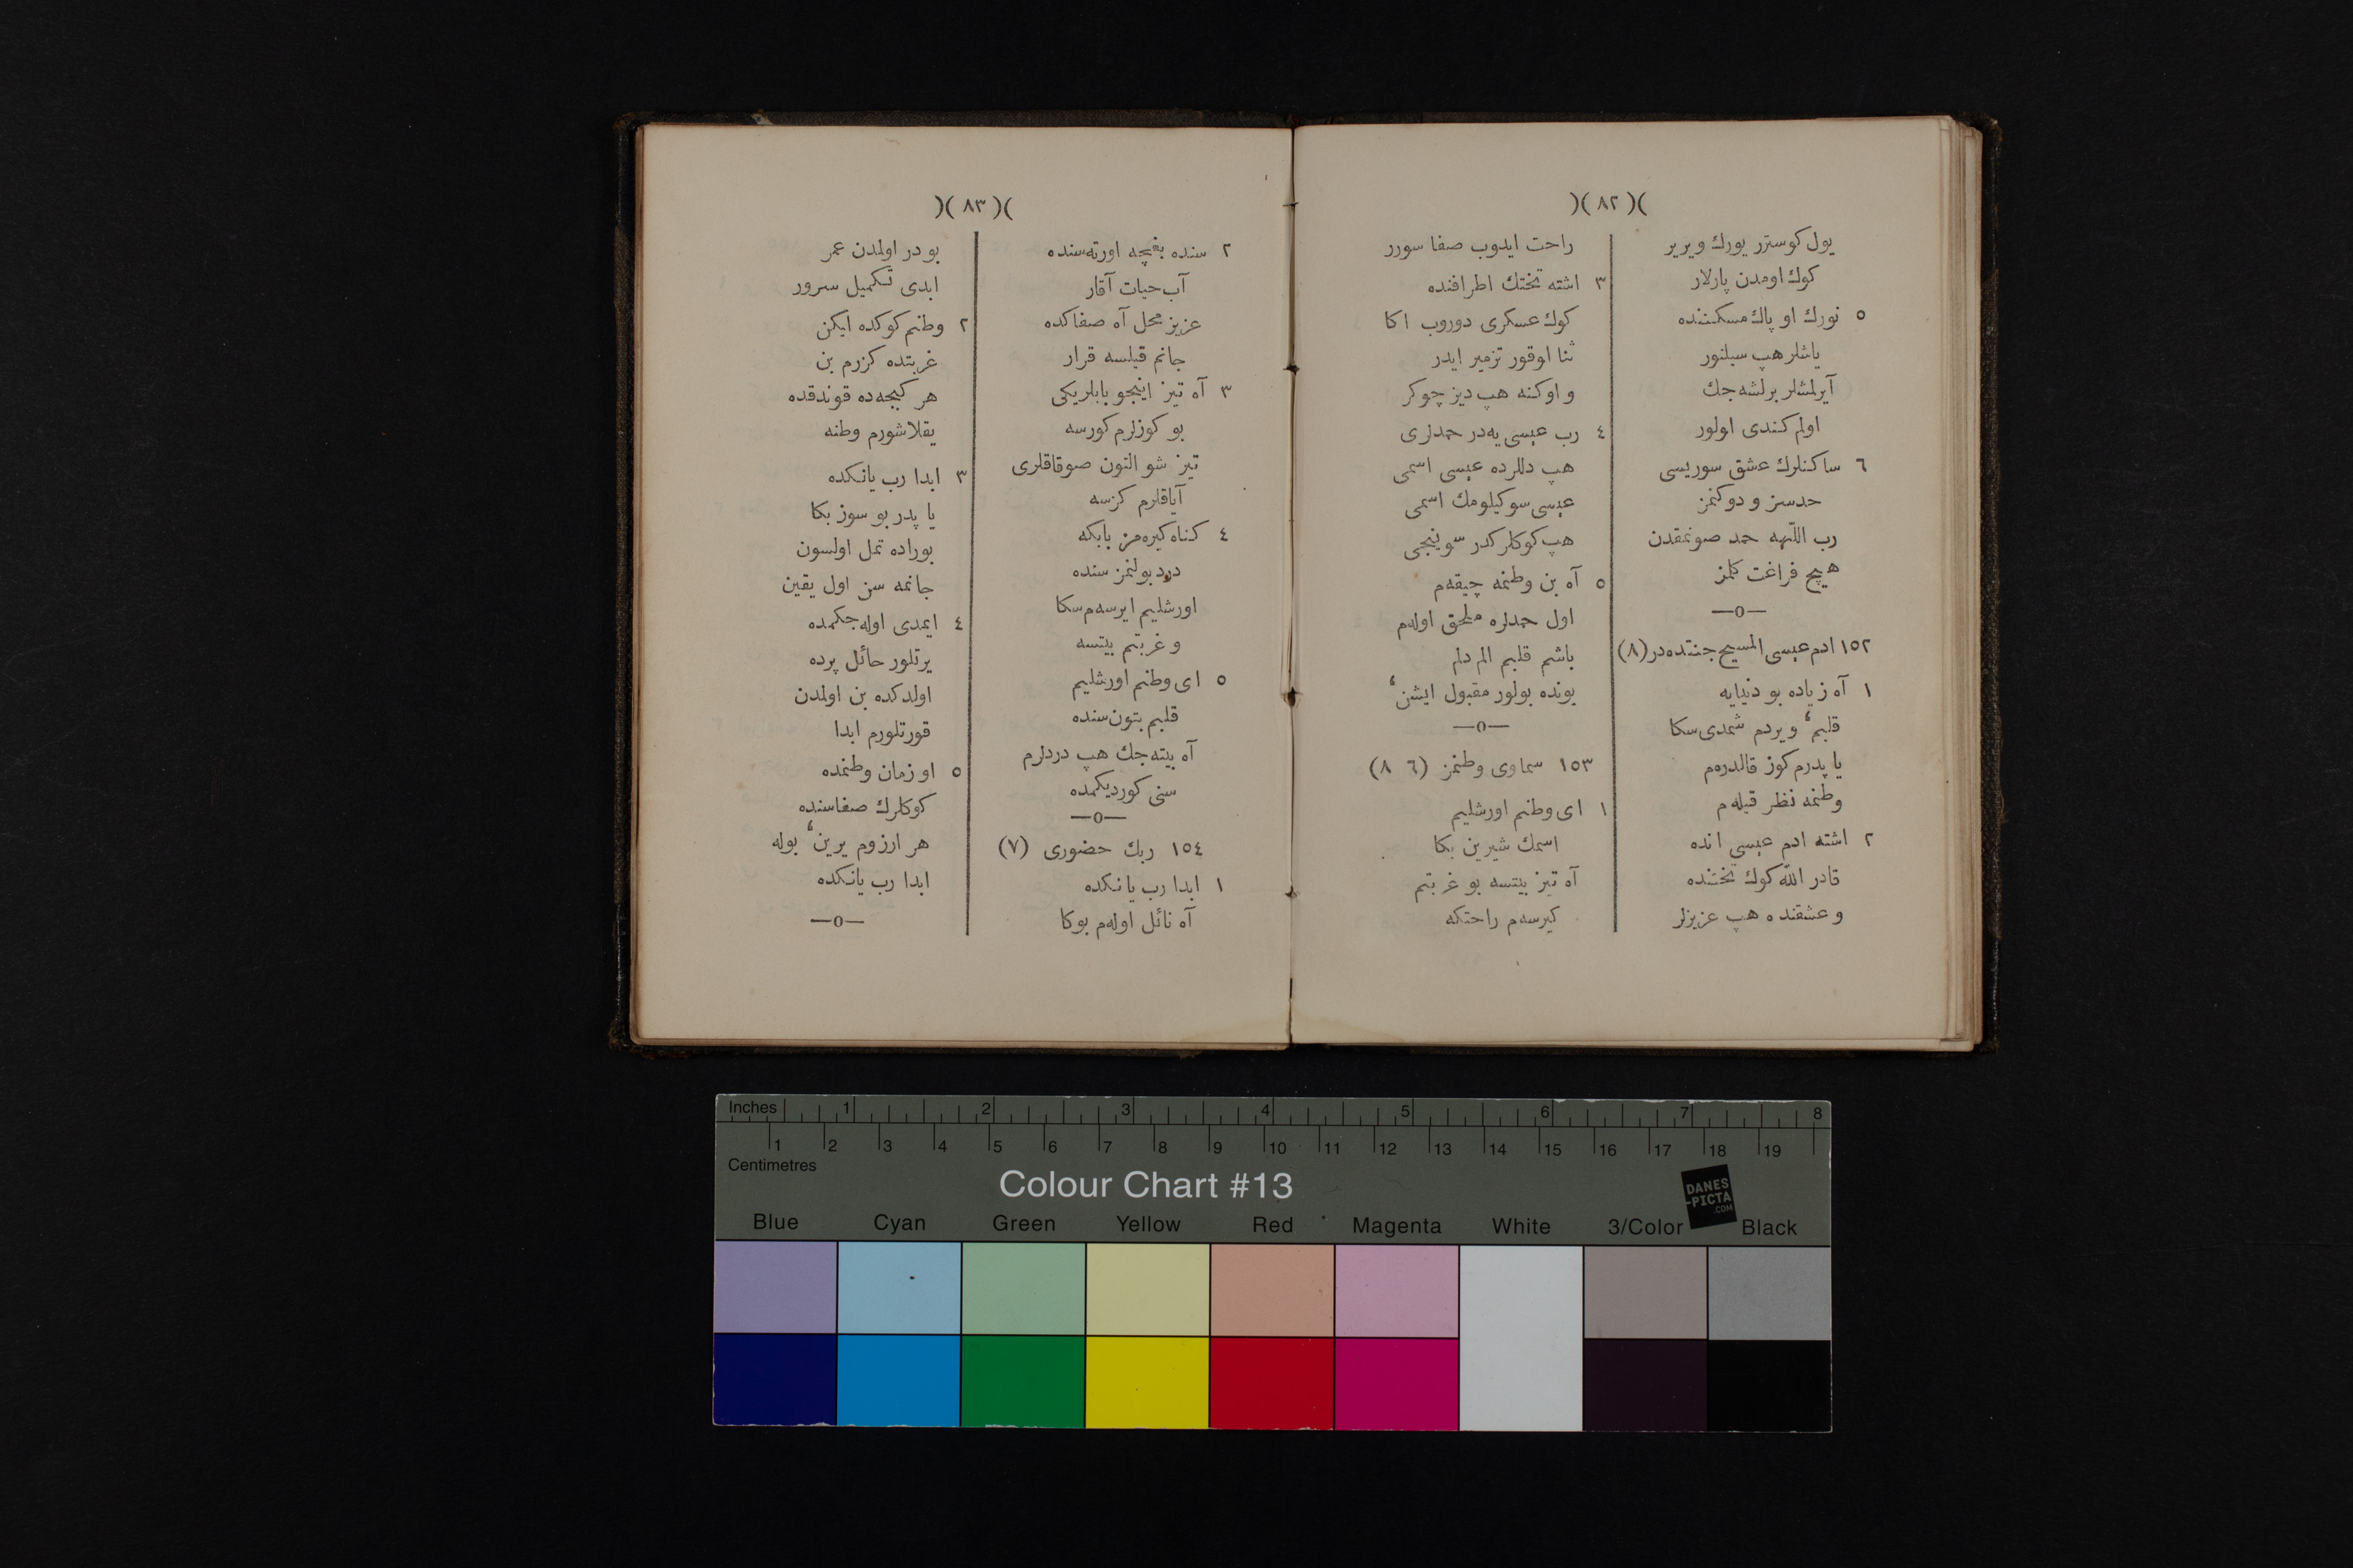 )( ٨٢ )(
يول كوسترر يورك ويرير
كوك اومدن پارلار
٥ نورك او پاك مسكننده
ياشلر هپ سيلنور
آيرلمشلر برلشه‌جك
اولم كندى اولور
٦ ساكنلرك عشق سوريسى
حدسز و دوكنمز
رب اللّهه حمد صونمقدن
هيچ فراغت كلمز
—o—
١٥٢ ادم عيسى المسيح جنتده‌در (٨)
١ آه زياده بو دنيايه
قلبمء ويردم شمدى سكا
يا پدرم كوز قالدره‌م
وطنمه نظر قيله‌م
٢ اشته ادم عيسى انده
قادر اللّه كوك تختنده
و عشقنده هپ عزيزلر
راحت ايدوب صفا سورر
٣ اشته تختك اطرافنده
كوك عسكرى دوروب اكا
ثنا اوقور تزمير ايدر
و اوكنه هپ ديز چوكر
٤ رب عيسى يه‌در حمدلرى
هپ دللرده عيسى اسمى
عيسى سوكيلومك اسمى
هپ كوكلر كدر سوينجى
٥ آه بن وطنمه چيقه‌م
اول حمدلره ملحق اوله‌م
باشم قلبم الم دلم
بونده بولور مقبول ايشنء
—o—
١٥٣ سماوى وطنمز (٦ ٨)
١ اى وطنم اورشليم
اسمك شيرين بكا
آه تيز بيتسه بو غربتم
كيرسه‌م راحتكه
)( ٨٣ )(
٢ سنده بغچه اورته‌سنده
آب حيات آقار
عزيز محل آه صفاكده
جانم قيلسه قرار
٣ آه تيز اينجو بابلريكى
بو كوزلرم كورسه
تيز شو التون صوقاقلرى
آياقلرم كزسه
٤ كناه كيره‌مز بابكه
درد بولنمز سنده
اورشليم ايرسه‌م سكا
و غربتم بيتسه
٥ اى وطنم اورشليم
قلبم بتون سنده
آه بيته‌جك هپ دردلرم
سنى كورديكمده
—o—
١٥٤ ربك حضورى (٧)
١ ابدا رب يانكده
آه نائل اوله‌م بوكا
بو در اولمدن عمر
ابدى تكميل سرور
٢ وطنم كوكده ايكن
غربتده كزرم بن
هر كيجه‌ده قوندقده
يقلاشورم وطنه
٣ ابدا رب يانكده
يا پدر بو سوز بكا
بوراده تمل اولسون
جانمه سن اول يقين
٤ ايمدى اوله‌جكمده
يرتلور حائل پرده
اولدكده بن اولمدن
قورتلورم ابدا
٥ او زمان وطنمده
كوكلرك صفاسنده
هر ارزوم يرينء بوله
ابدا رب يانكده
—o—
Inches 1 2 3 4 5 6 7 8
1 2 3 4 5 6 7 8 9 10 11 12 13 14 15 16 17 18 19
Centimetres
Colour Chart #13
DANES
-PICTA
.COM
Blue Cyan Green Yellow Red Magenta White 3/Color Black